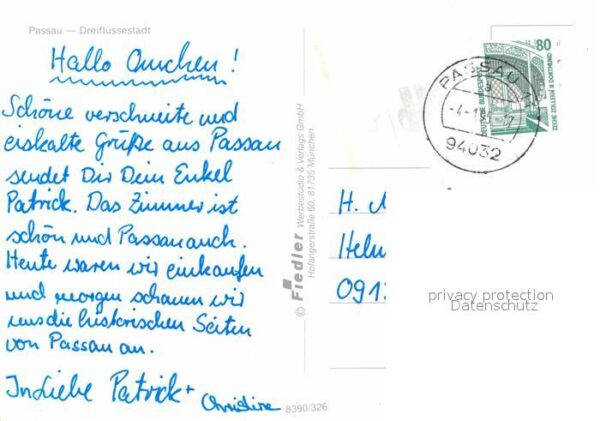 Passau — Dreiflüssestadt
Hallo Omchen!
Schöne verschneite und
eiskalte Grüße aus Passau
sendet Dir Dein Enkel
Patrick. Das Zimmer ist
schön und Passau auch.
Heute waren wir einkaufen
und morgen schauen wir
uns die historischen Seiten
von Passau an.
In Liebe Patrick +
Christine
8390/326
© Fiedler Werbestudio & Verlags GmbH
Hofangerstraße 60, 81735 München
80
DEUTSCHE BUNDESPOST
ZECHE ZOLLERN II DORTMUND
PASSAU 1
94032
H.
Heln
091
privacy protection
Datenschutz